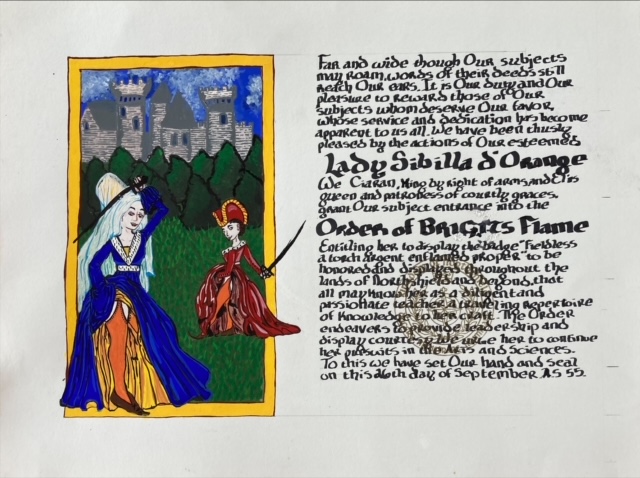 Far and wide though Our subjects
may roam, words of their deeds still
reach Our ears. It is Our duty and Our
pleasure to reward those of Our
subjects whom deserve Our favor,
whose service and dedication has become
apparent to us all. We have been thusly
pleased by the actions of Our esteemed
Lady Sibilla d'Orange
We Ciaran, King by right of arms and Elis
queen and patroness of courtly graces,
grant Our subject entrance into the
Order of Brigits Flame
Entitling her to display the badge "Fieldless
a torch argent enflamed proper" to be
honored and displayed throughout the
lands of Northshield and beyond, that
all may know her as a diligent and
passionate teacher a traveling repertoire
of knowledge to her craft. The Order
endeavers to provide leadership and
display courtesy. We urge her to continue
her pursuits in the Arts and Sciences.
To this we have set Our hand and seal
on this 26th day of September AS 55.